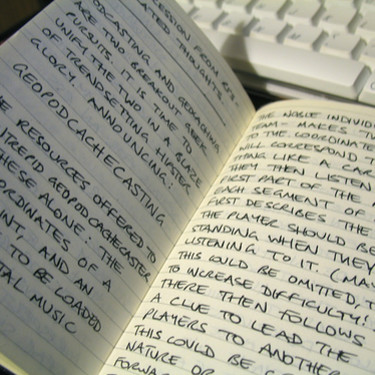 ESSION FROM
LATED THOUGHTS...
ODCASTING AND GEOCACHING
ARE TWO BREAKOUT GEEK
PURSUITS. IT IS TIME TO
UNIFY THE TWO IN A BLAZE
OF TRENDSETTING HIPSTER
GLORY. ANNOUNCING:
GEOPODCACHECASTING
E RESOURCES OFFERED TO
INTREPID GEOPODCACHECASTER
THESE ALONE: THE
ORDINATES OF A
INT, AND AN
TO BE LOADED
TAL MUSIC
THE NOBLE INDIVID
TEAM - MAKES T
TO THE COORDINATE
WILL CORRESPOND T
THING LIKE A CAC
THEY THEN LISTEN
FIRST PART OF THE
EACH SEGMENT OF
FIRST DESCRIBES THE
THE PLAYER SHOULD BE
STANDING WHEN THEY
LISTENING TO IT. (MAY
THIS COULD BE OMITTED, T
TO INCREASE DIFFICULTY!
THERE THEN FOLLOWS
A CLUE TO LEAD THE
PLAYERS TO ANOTHER
THIS COULD BE
NATURE OR
FORWA